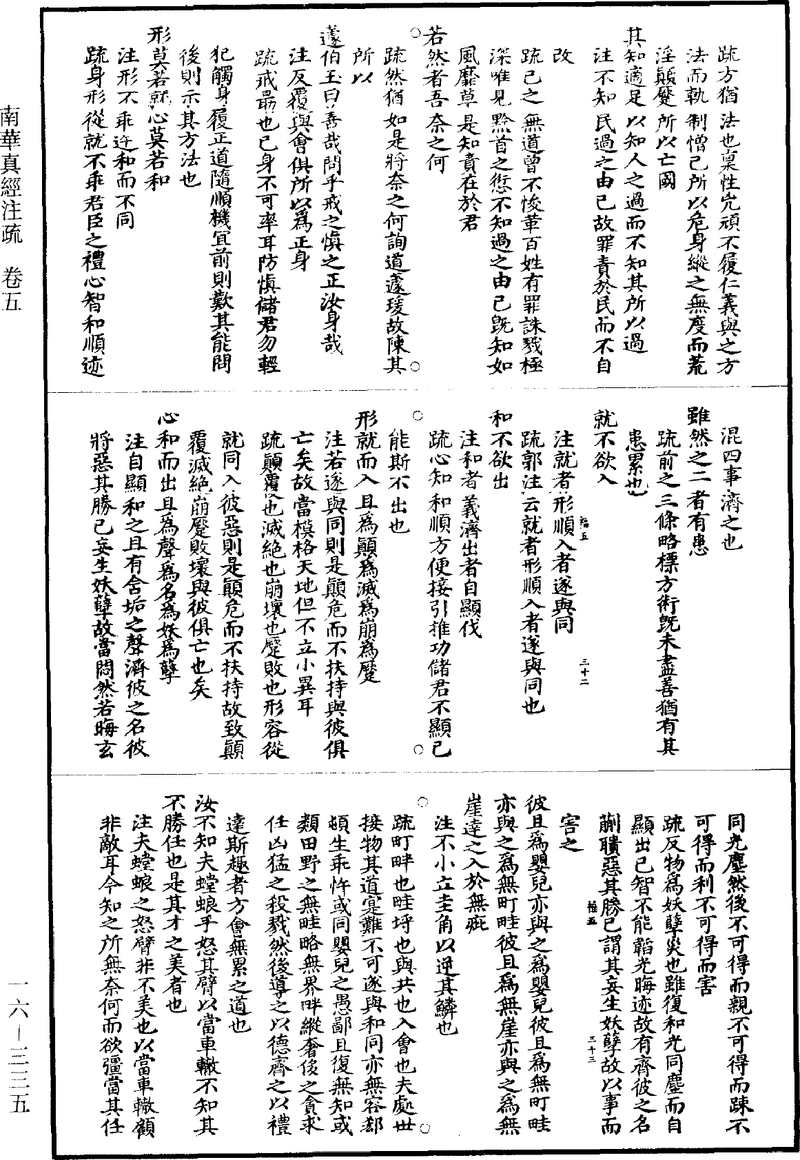 南華真經注疏　卷五
疏方猶法也稟性兇頑不履仁義與之方
法而軌制憎己所以危身縱之無度而荒
淫顛蹙所以亡國
其知適足以知人之過而不知其所以過
注不知民過之由己故罪責於民而不自
改
疏己之無道曾不悛革百姓有罪誅戮極
深唯見黔首之愆不知過之由己既知如
風靡草是知責在於君
若然者吾奈之何
疏然猶如是將奈之何詢道蘧瑗故陳其
所以
蘧伯玉曰善哉問乎戒之慎之正汝身哉
注反覆與會俱所以為正身
疏戒勗也己身不可率耳防慎儲君勿輕
犯觸身履正道隨順機宜前則歎其能問
後則示其方法也
形莫若就心莫若和
注形不乖迕和而不同
疏身形從就不乖君臣之禮心智和順迹
混四事濟之也
雖然之二者有患
疏前之三條略標方術既未盡善猶有其
患累也
就不欲入
注就者形順入者遂與同
疏郭注云就者形順入者遂與同也
和不欲出
注和者義濟出者自顯伐
疏心知和順方便接引推功儲君不顯己
能斯不出也
形就而入且為顛為滅為崩為蹙
注若遂與同則是顛危而不扶持與彼俱
亡矣故當模格天地但不立小異耳
疏顛覆也滅絕也崩壞也蹙敗也形容從
就同入彼惡則是顛危而不扶持故致顛
覆滅絕崩蹙敗壞與彼俱亡也矣
心和而出且為聲為名為妖為孽
注自顯和之且有含垢之聲濟彼之名彼
將惡其勝己妄生妖孽故當悶然若晦玄
同光塵然後不可得而親不可得而踈不
可得而利不可得而害
疏反物為妖孽災也雖復和光同塵而自
顯出己智不能韜光晦迹故有齊彼之名
蒯聵惡其勝己謂其妄生妖孽故以事而
害之
彼且為嬰兒亦與之為嬰兒彼且為無町畦
亦與之為無町畦彼且為無崖亦與之為無
崖達之入於無疵
注不小立圭角以逆其鱗也
疏町畔也畦埒也與共也入會也夫處世
接物其道寔難不可遂與和同亦無容都
頓生乖忤或同嬰兒之愚鄙且復無知或
類田野之無畦略無界畔縱奢侈之貪求
任凶猛之殺戮然後導之以德齊之以禮
達斯趣者方會無累之道也
汝不知夫螳蜋乎怒其臂以當車轍不知其
不勝任也是其才之美者也
注夫螳蜋之怒臂非不美也以當車轍顧
非敵耳今知之所無奈何而欲彊當其任
一六—三三五